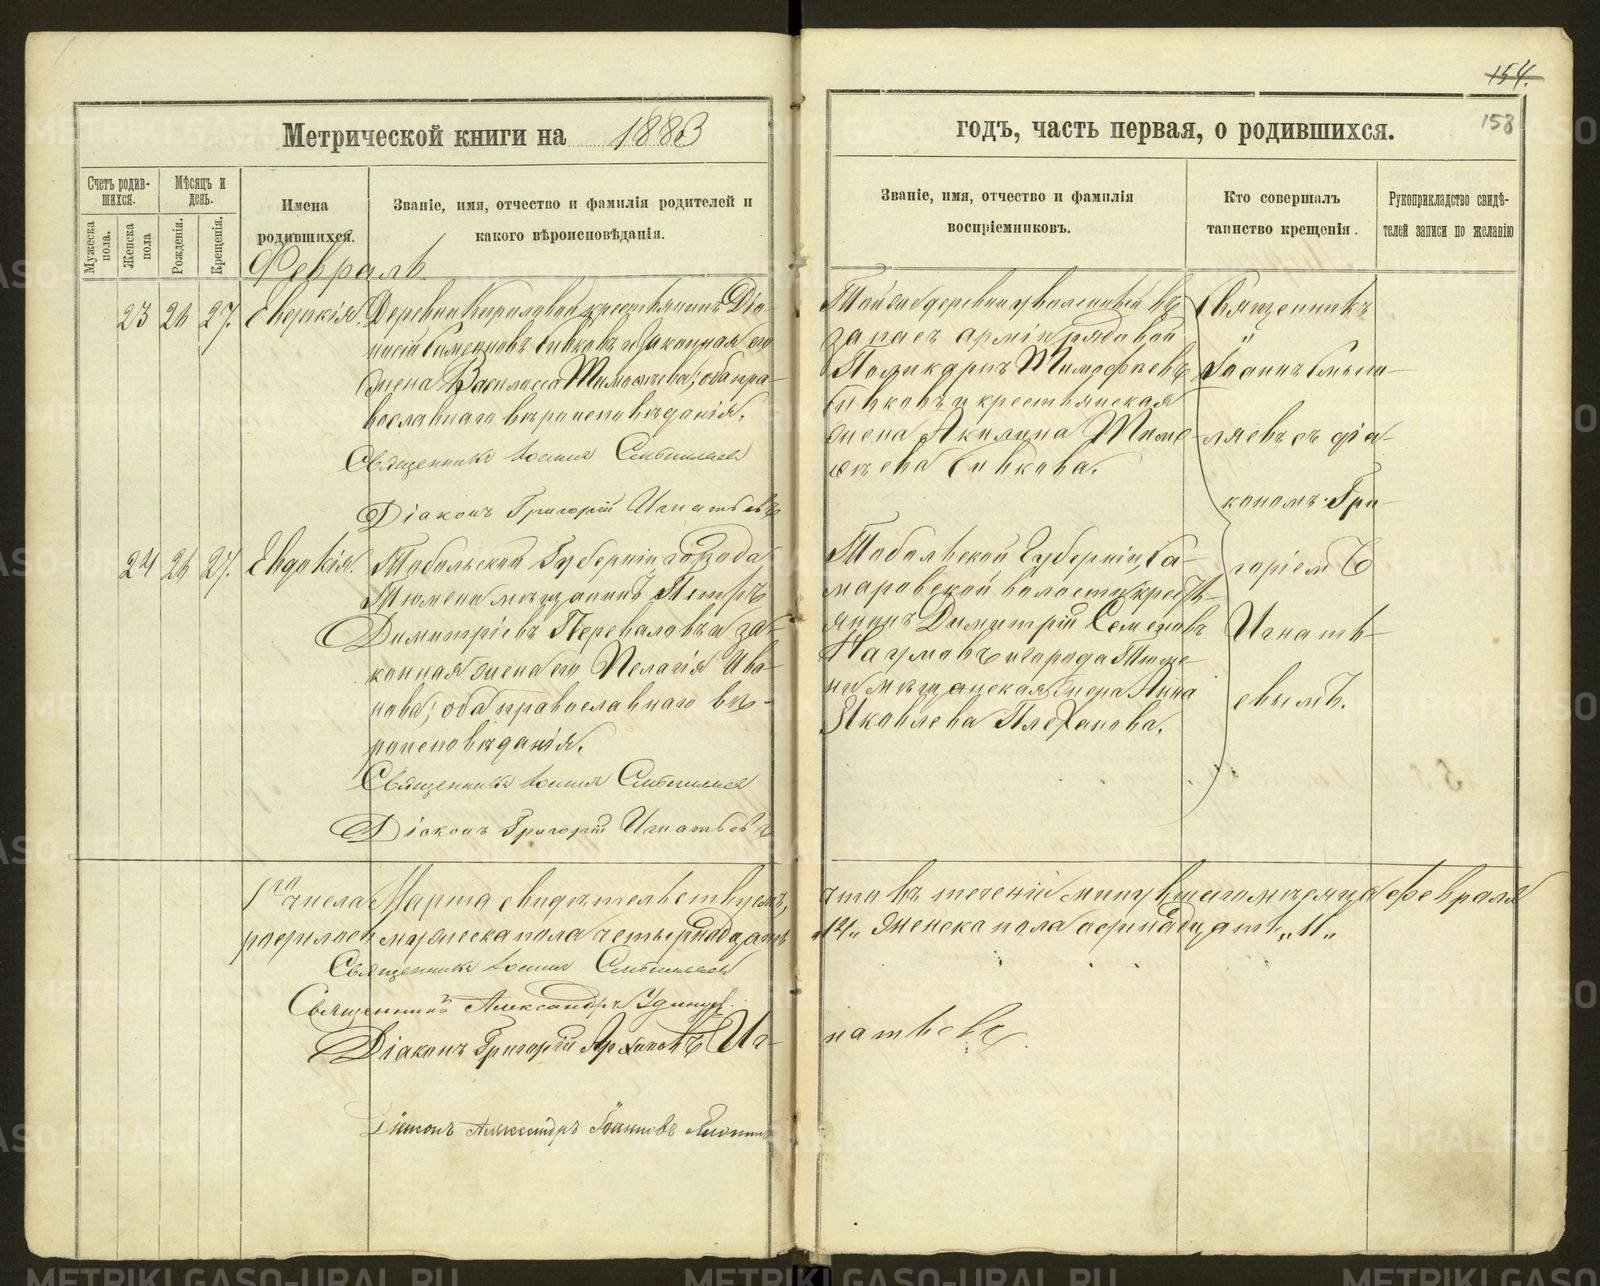 154.
158
Метрической книги на 1883
годъ, часть первая, о родившихся.
Счетъ родив-
шихся.
Мѣсяцъ и
день.
Мужеска
пола.
Женска
пола
Рожденія.
Крещенія.
Имена
родившихся.
Званіе, имя, отчество и фамилія родителей и
какого вѣроисповѣданія.
Званіе, имя, отчество и фамилія
воспріемниковъ.
Кто совершалъ
таинство крещенія.
Рукоприкладство свидѣ-
телей записи по желанію
Февраль
23 26 27. Евдокія. Деревни крестьянинъ Діо-
нисій Симеоновъ и законная его
жена Василиса Тимоѳеева; оба пра-
вославнаго вѣроисповѣданія.
Священникъ Іоаннъ
Діаконъ Григорій Игнатьевъ
Той же деревни въ
запасѣ арміи рядовой
Поликарпъ Тимофеевъ
и крестьянская
жена Акилина Тимо-
ѳеева
Священникъ
Іоаннъ Смыш-
ляевъ съ діа-
кономъ Гри-
горіемъ
Игнать-
евымъ.
24 26 27. Евдокія. Тобольской Губерніи города
Тюмени мѣщанинъ Петръ
Димитріевъ Переваловъ и за-
конная жена его Пелагія Ива-
нова; оба православнаго вѣ-
роисповѣданія.
Священникъ Іоаннъ
Діаконъ Григорій Игнатьевъ
Тобольской Губерніи, Са-
маровской волости крест-
янинъ Димитрій Семеновъ
Наумовъ и города Тюме-
ни мѣщанская жена Анна
Яковлева Плеханова.
1го числа Марта свидѣтельствуемъ,
что въ теченіи минувшаго мѣсяца февраля
родилось мужеска пола четырнадцать
„14„ женска пола одинадцать „11„
Священникъ Іоаннъ
Священникъ Александръ Удинцевъ
Діаконъ Григорій Архиповъ Иг-
натьевъ.
Діаконъ Александръ Іоанновъ
METRIKI.GASO-URAL.RU